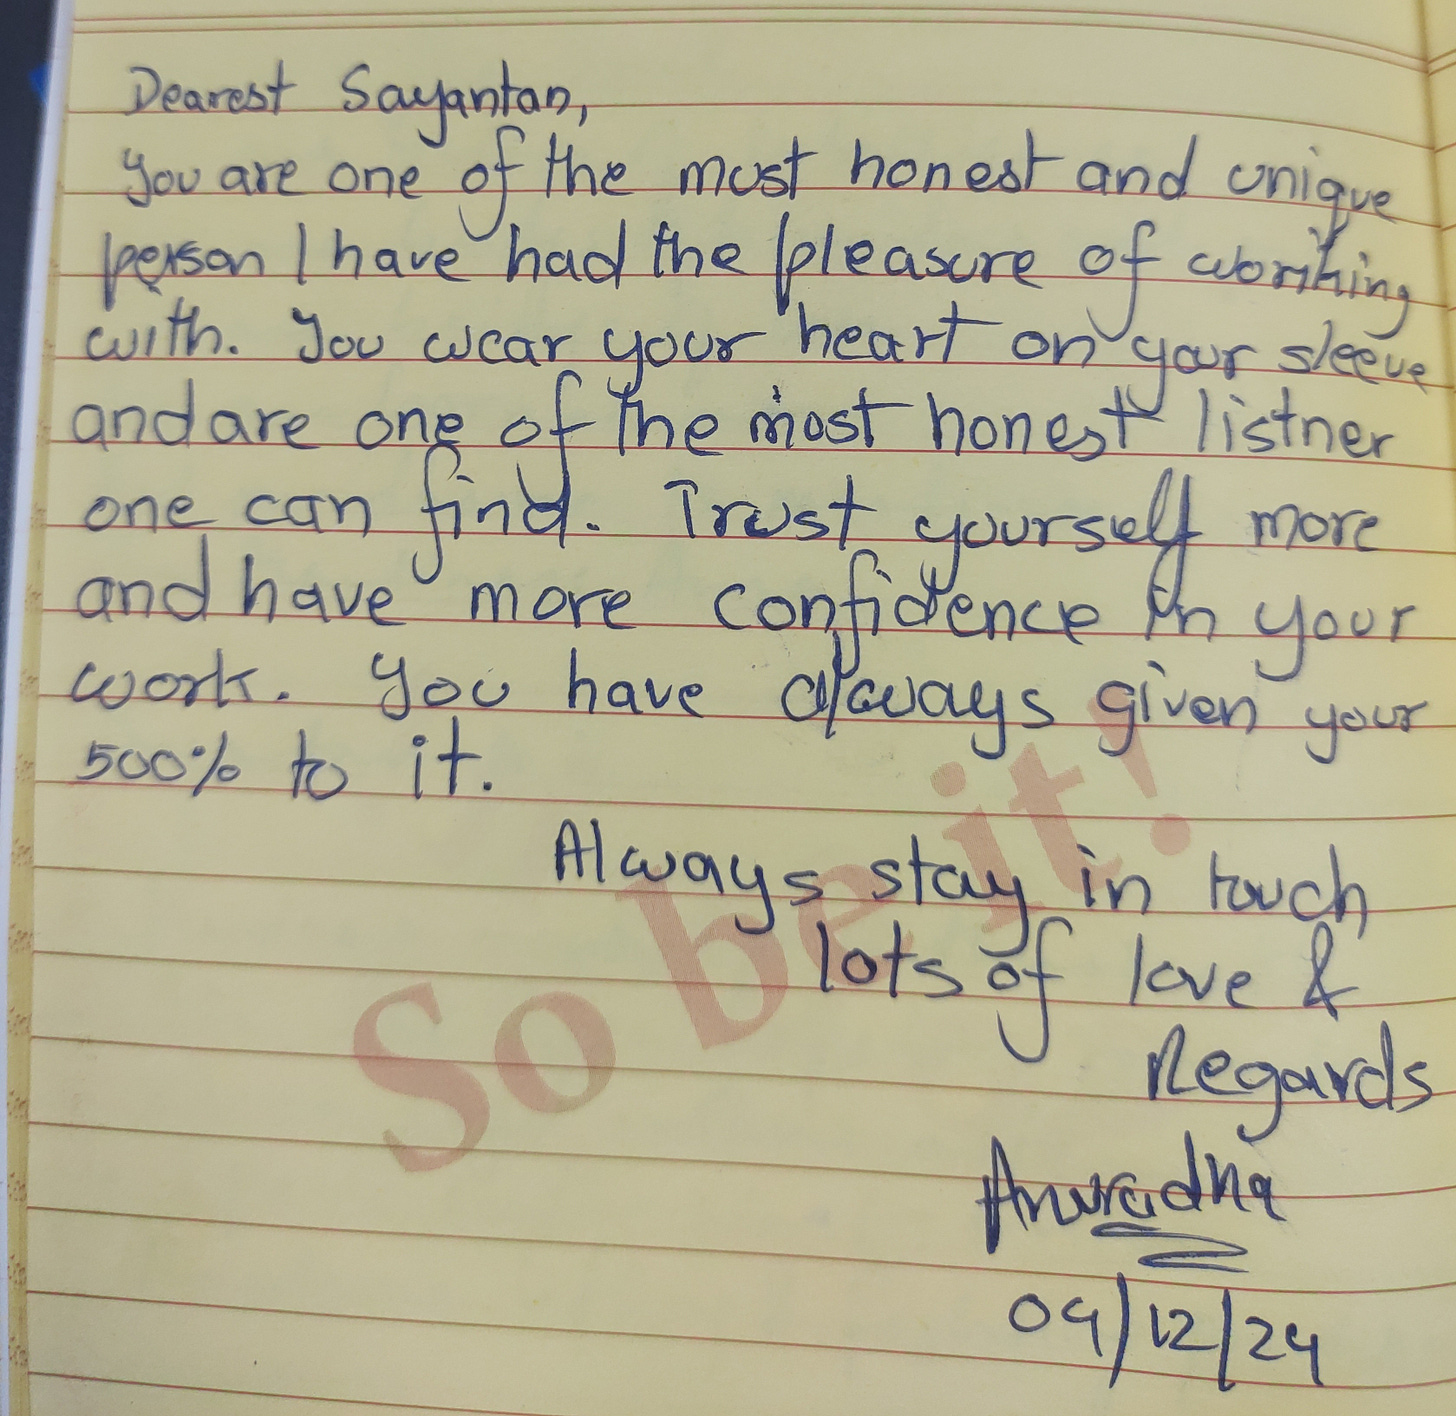 Dearest Sayantan,
You are one of the most honest and unique
person I have had the pleasure of working
with. You wear your heart on your sleeve
and are one of the most honest listner
one can find. Trust yourself more
and have more confidence in your
work. You have always given your
500% to it.
Always stay in touch
lots of love &
Regards
Anuradha
04/12/24
So be it!